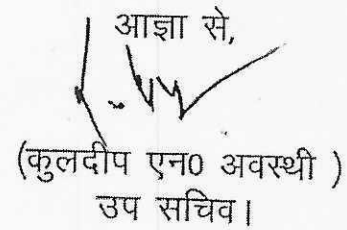 आज्ञा से,
(कुलदीप एन0 अवस्थी )
उप सचिव।